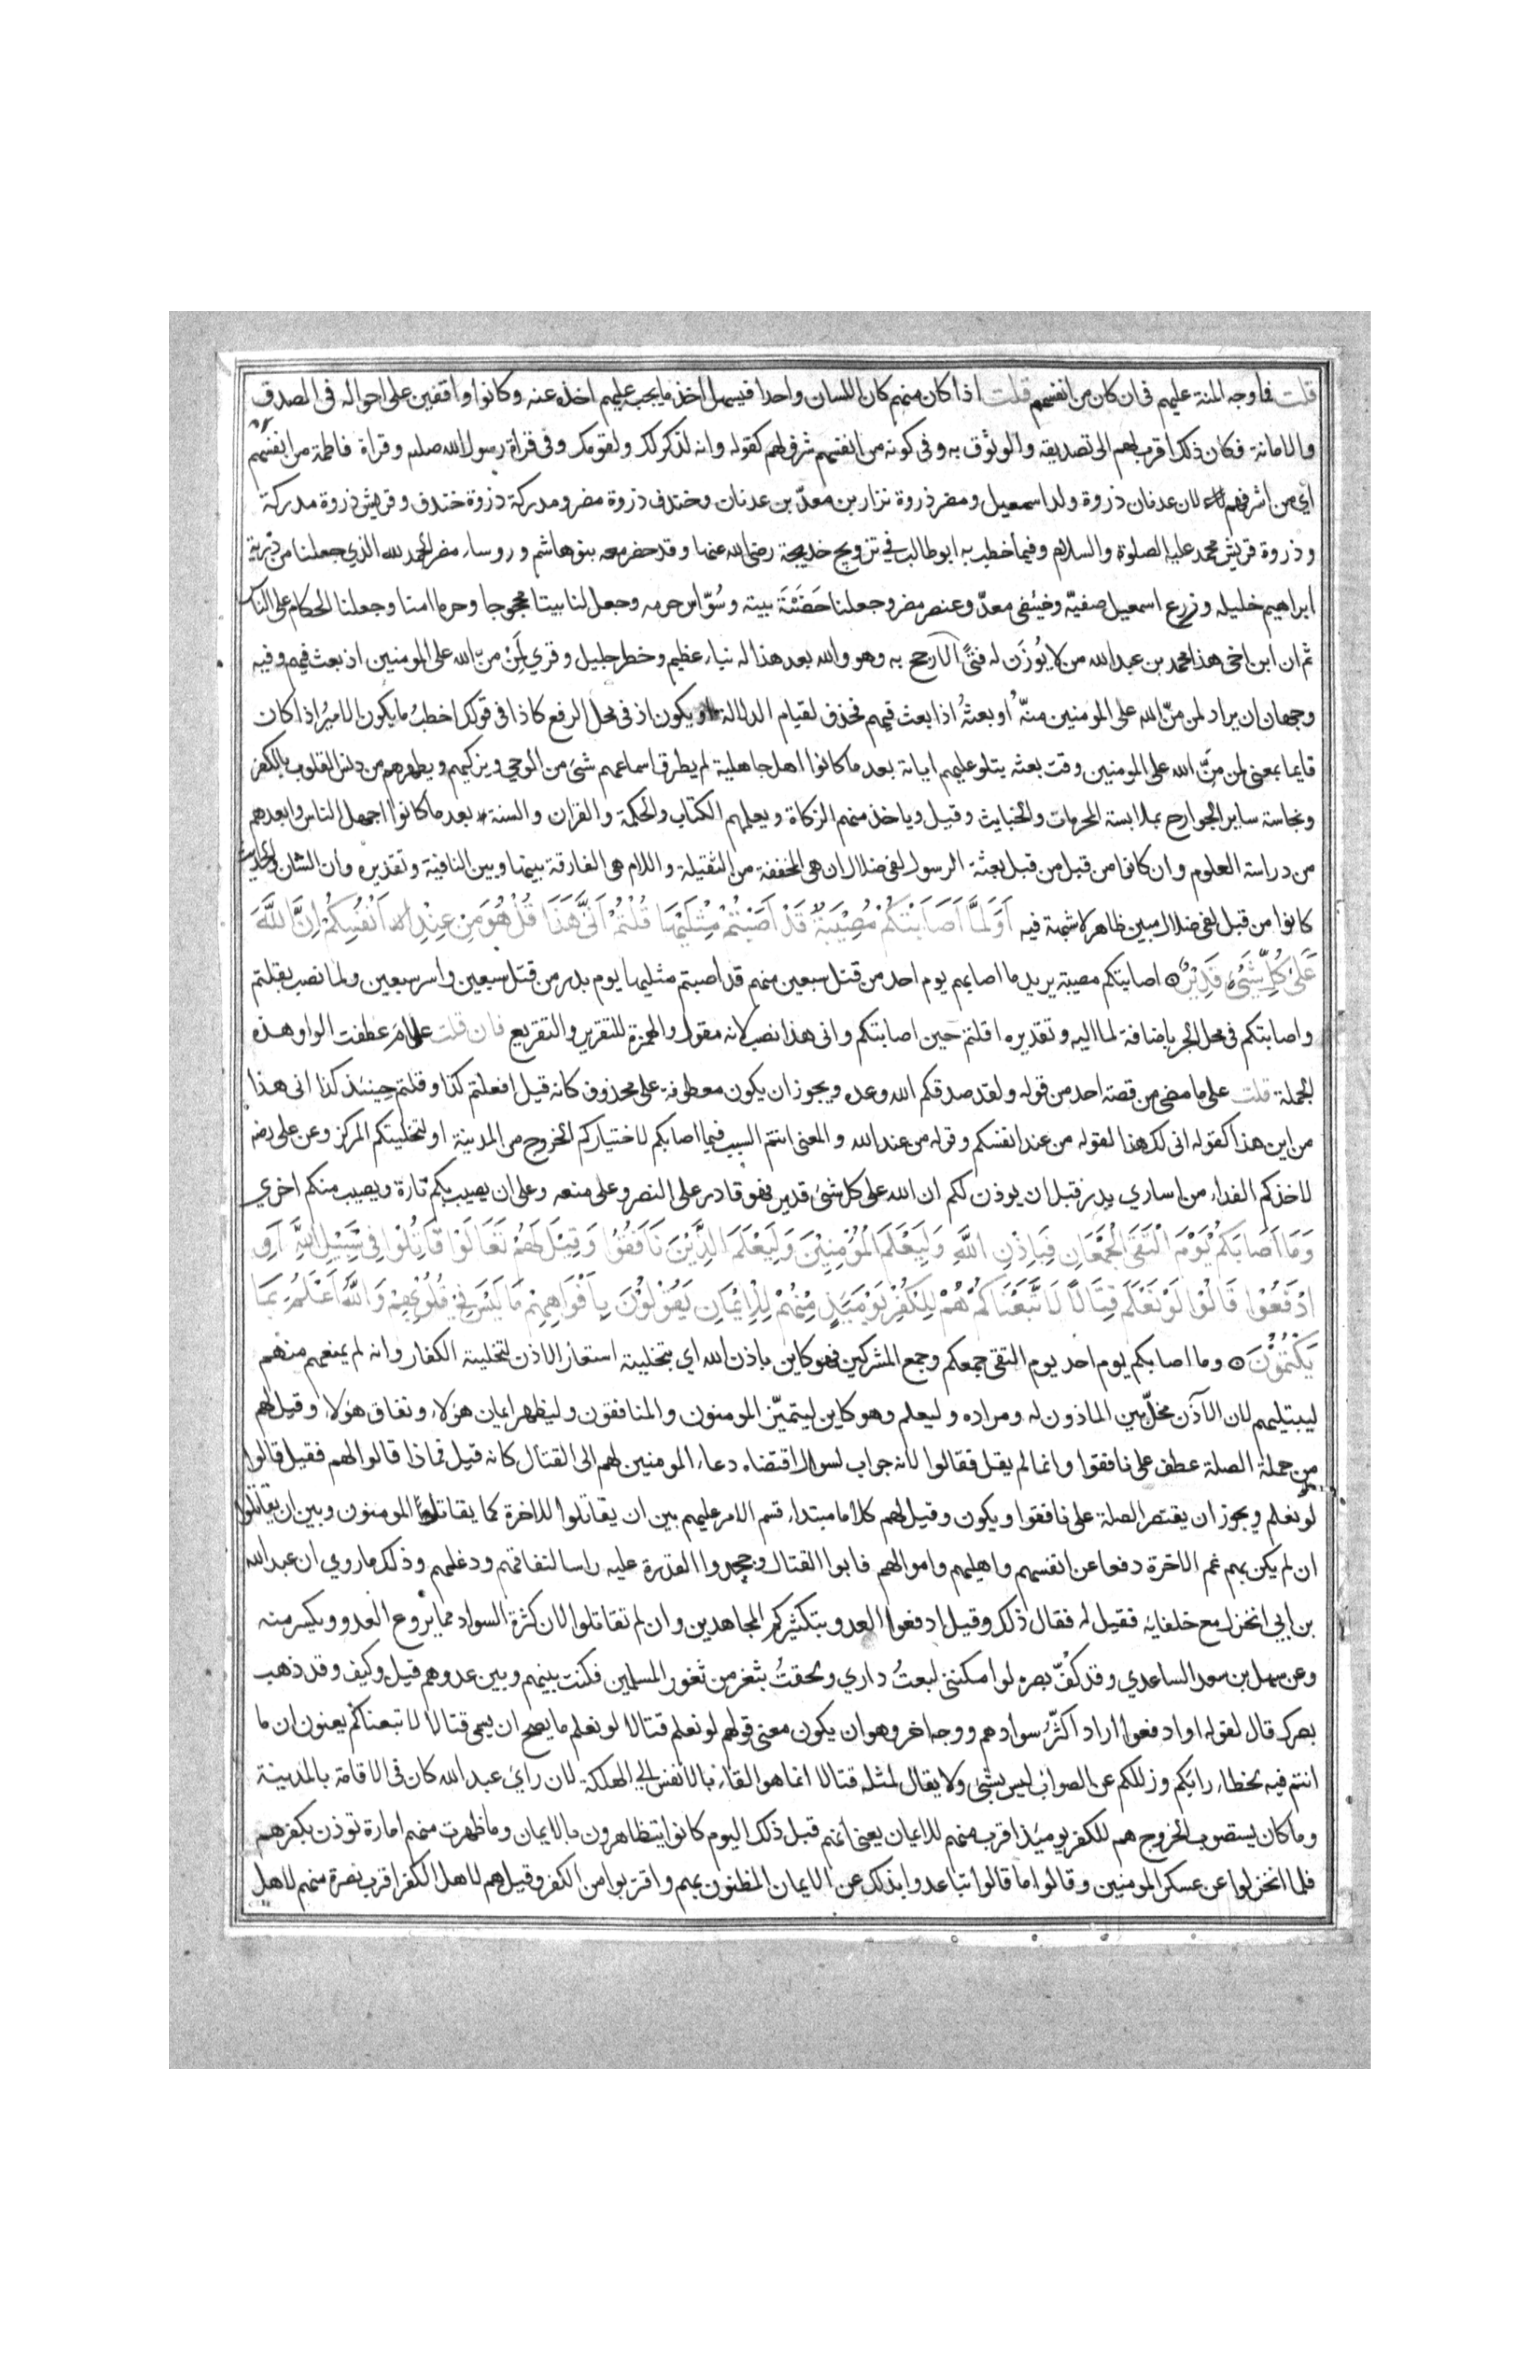 قلت فما وجه المنة عليهم في ان كان من انفسهم قلت اذا كان منهم كان اللسان واحدا فيسهل اخذ ما يجب عليهم اخذه عنه وكانوا واقفين على احواله في الصدق
والامانة فكان ذلك اقرب لهم الى تصديقه والوثوق به وفي كونه من انفسهم شرف لهم كقوله وانه لذكر لك ولقومك وفي قراة رسول الله صلعم وقراة فاطمة من انفسهم
اي من اشرفهم لان عدنان ذروة ولد اسمعيل ومضر ذروة نزار بن معدّ بن عدنان وخندف ذروة مضر ومدركة ذروة خندف وقريش ذروة مدركة
وذروة قريش محمد عليه الصلوة والسلام وفيما خطب به ابو طالب في تزويج خديجة رضي الله عنها وقد حضر معه بنو هاشم وروساء مضر الحمد لله الذي جعلنا من ذرية
ابراهيم خليله وزرع اسمعيل صفيّه وضئضى معدّ وعنصر مضر وجعلنا حَضَنَةَ بيته وسُوّاس حرمه وجعل لنا بيتا محجوجا وحرما امنا وجعلنا الحكام على الناس
ثم ان ابن اخي هذا محمد بن عبد الله من لا يُوزَن له فتًى الا رجح به وهو والله بعد هذا له نباء عظيم وخطر جليل وقري لَمِنْ منّ الله على المومنين اذ بعث فيهم وفيه
وجهان ان يراد لمن منّ الله على المومنين منّهُ او بعثهُ اذا بعث فيهم فحذف لقيام الدلالة او يكون اذ في محل الرفع كاذا في قولك اخطبُ ما يكون الاميرُ اذا كان
قايما بمعنى لمن منِّ الله على المومنين وقت بعثه يتلو عليهم اياته بعد ما كانوا اهل جاهلية لم يطرق اسماعهم شئ من الوحي ويزكيهم ويطهرهم من دنس القلوب بالكفر
ونجاسة ساير الجوارح بملابسة المحرمات والخبايث وقيل وياخذ منهم الزكاة ويعلمهم الكتاب والحكمة والقران والسنة بعد ما كانوا اجهل الناس وابعدهم
من دراسة العلوم وان كانوا من قبل من قبل بعثة الرسول لفي ضلال ان هي المخففة من الثقيلة واللام هي الفارقة بينها وبين النافية وتقديره وان الشان والحديث
كانوا من قبل لفي ضلال مبين ظاهر لا شبهة فيه اَوَلَمَّا اَصَابَتْكُمْ مُصِيْبَةٌ قَدْ اَصَبْتُمْ مِثْلَيْهَا قُلْتُمْ اَنَّى هَذَا قُلْ هُوَ مِنْ عِنْدِ اَنْفُسِكُمْ اِنَّ اللَّهَ
عَلَى كُلِّ شَيْءٍ قَدِيْرٌ اصابتكم مصيبة يريد ما اصابهم يوم احد من قتل سبعين منهم قد اصبتم مثليها يوم بدر من قتل سبعين واسر سبعين ولما نصب بقلتم
واصابتكم في محل الجر باضافة لما اليه وتقديره اقلتم حين اصابتكم وانى هذا نصب لانه مقول والهمزة للتقرير والتقريع فان قلت على مَ عطفت الواو هذه
الجملة قلت على ما مضى من قصة احد من قوله ولقد صدقكم الله وعده ويجوز ان يكون معطوفة على محذوف كانه قيل افعلتم كذا وقلتم حينئذ كذا انى هذا
من اين هذا كقوله انى لك هذا لقوله من عند انفسكم وقوله من عند الله والمعنى انتم السبب فيما اصابكم لاختياركم الخروج من المدينة او لتخليتكم المركز وعن على رضه
لاخذكم الفداء من اساري بدر قبل ان يوذن لكم ان الله على كل شئ قدير فهو قادر على النصر وعلى منعه وعلى ان يصيب بكم تارة ويصيب منكم اخري
وَمَا اَصَابَكُمْ يَوْمَ الْتَقَى الْجَمْعَانِ فَبِاِذْنِ اللَّهِ وَلِيَعْلَمَ الْمُؤْمِنِيْنَ وَلِيَعْلَمَ الَّذِيْنَ نَافَقُوْا وَقِيْلَ لَهُمْ تَعَالَوْا قَاتِلُوْا فِي سَبِيْلِ اللَّهِ اَوِ
ادْفَعُوْا قَالُوْا لَوْ نَعْلَمُ قِتَالًا لَاتَّبَعْنَاكُمْ هُمْ لِلْكُفْرِ يَوْمَئِذٍ مِنْهُمْ لِلْاِيْمَانِ يَقُوْلُوْنَ بِاَفْوَاهِهِمْ مَا لَيْسَ فِي قُلُوْبِهِمْ وَاللَّهُ اَعْلَمُ بِمَا
يَكْتُمُوْنَ وما اصابكم يوم احد يوم التقى جمعكم وجمع المشركين فهو كاين باذن الله اي بتخليته استعار الاذن لتخليته الكفار وانه لم يمنعهم منهم
ليبتليهم لان الآذن مخلّ بين الماذون له ومراده وليعلم وهو كاين ليتميّز المومنون والمنافقون وليظهر ايمان هؤلاء ونفاق هؤلاء وقيل لهم
من جملة الصلة عطف على نافقوا وانما لم يقل فقالوا لانه جواب لسوال اقتضاه دعاء المومنين لهم الى القتال كانه قيل فماذا قالوا لهم فقيل قالوا
لو نعلم ويجوز ان يقتصر الصلة على نافقوا ويكون وقيل لهم كلاما مبتداء قسم الامر عليهم بين ان يقاتلوا للاخرة كما يقاتل المومنون وبين ان يقاتلوا
ان لم يكن بهم غم الاخرة دفعا عن انفسهم واهليهم واموالهم فابوا القتال وجحدوا القدرة عليه راسا لنفاقهم ودغلهم وذلك ما روي ان عبد الله
بن ابي انخزل مع حلفايه فقيل له فقال ذلك وقيل ادفعوا العدو بتكثيركم المجاهدين وان لم تقاتلوا لان كثرة السواد مما يروع العدو ويكسر منه
وعن سهل بن سعد الساعدي وقد كُفّ بصره لو امكنني لبعتُ داري ولحقتُ بثغر من ثغور المسلمين فكنت بينهم وبين عدوهم قيل وكيف وقد ذهب
بصرك قال لقوله او ادفعوا اراد اكثّرُ سوادهم ووجه اخر وهو ان يكون معنى قولهم لو نعلم قتالا لو نعلم ما يصح ان يسمى قتالا لاتبعناكم يعنون ان ما
انتم فيه لخطاء رايكم وزللكم عن الصواب ليس بشئ ولا يقال لمثله قتالا انما هو القاء بالانفس الى الهلكة لان راي عبد الله كان في الاقامة بالمدينة
وما كان يستصوب الخروج هم للكفر يوميذ اقرب منهم للايمان يعني انهم قبل ذلك اليوم كانوا يتظاهرون بالايمان وما ظهرت منهم امارة توذن بكفرهم
فلما انخزلوا عن عسكر المومنين وقالوا ما قالوا تباعدوا بذلك عن الايمان المظنون بهم واقتربوا من الكفر وقيل هم لاهل الكفر اقرب نصرة منهم لاهل